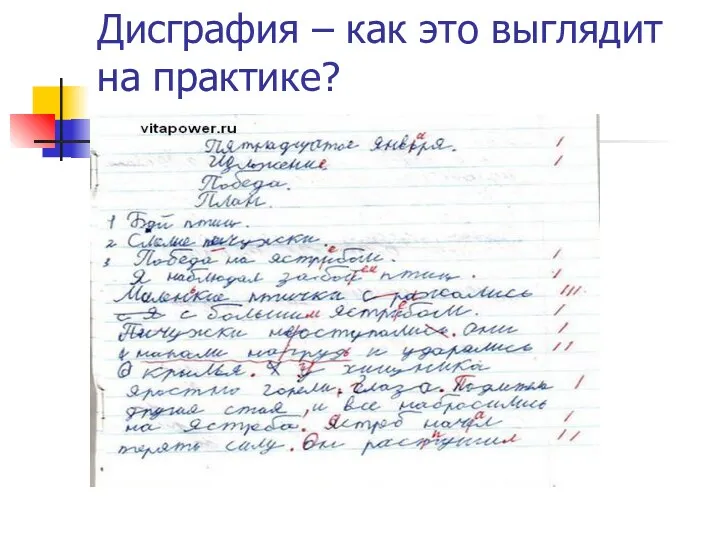 Дисграфия – как это выглядит
на практике?
vitapower.ru
Пятнадцатое января.
Изложение
Победа.
План.
1 Бой птиц.
2 Смелые пичужки.
3 Победа на ястребом.
Я наблюдал за бой птиц.
Маленкие птички с ражались
с я с большим ястребом.
Пичужки не оступались. Они
напали на грудь и ударялись
О крылья. Х у хищника
яростно горели глаза. Подлитела
другая стая, и все набросились
на ястреба. Ястреб начал
терять силу. Он